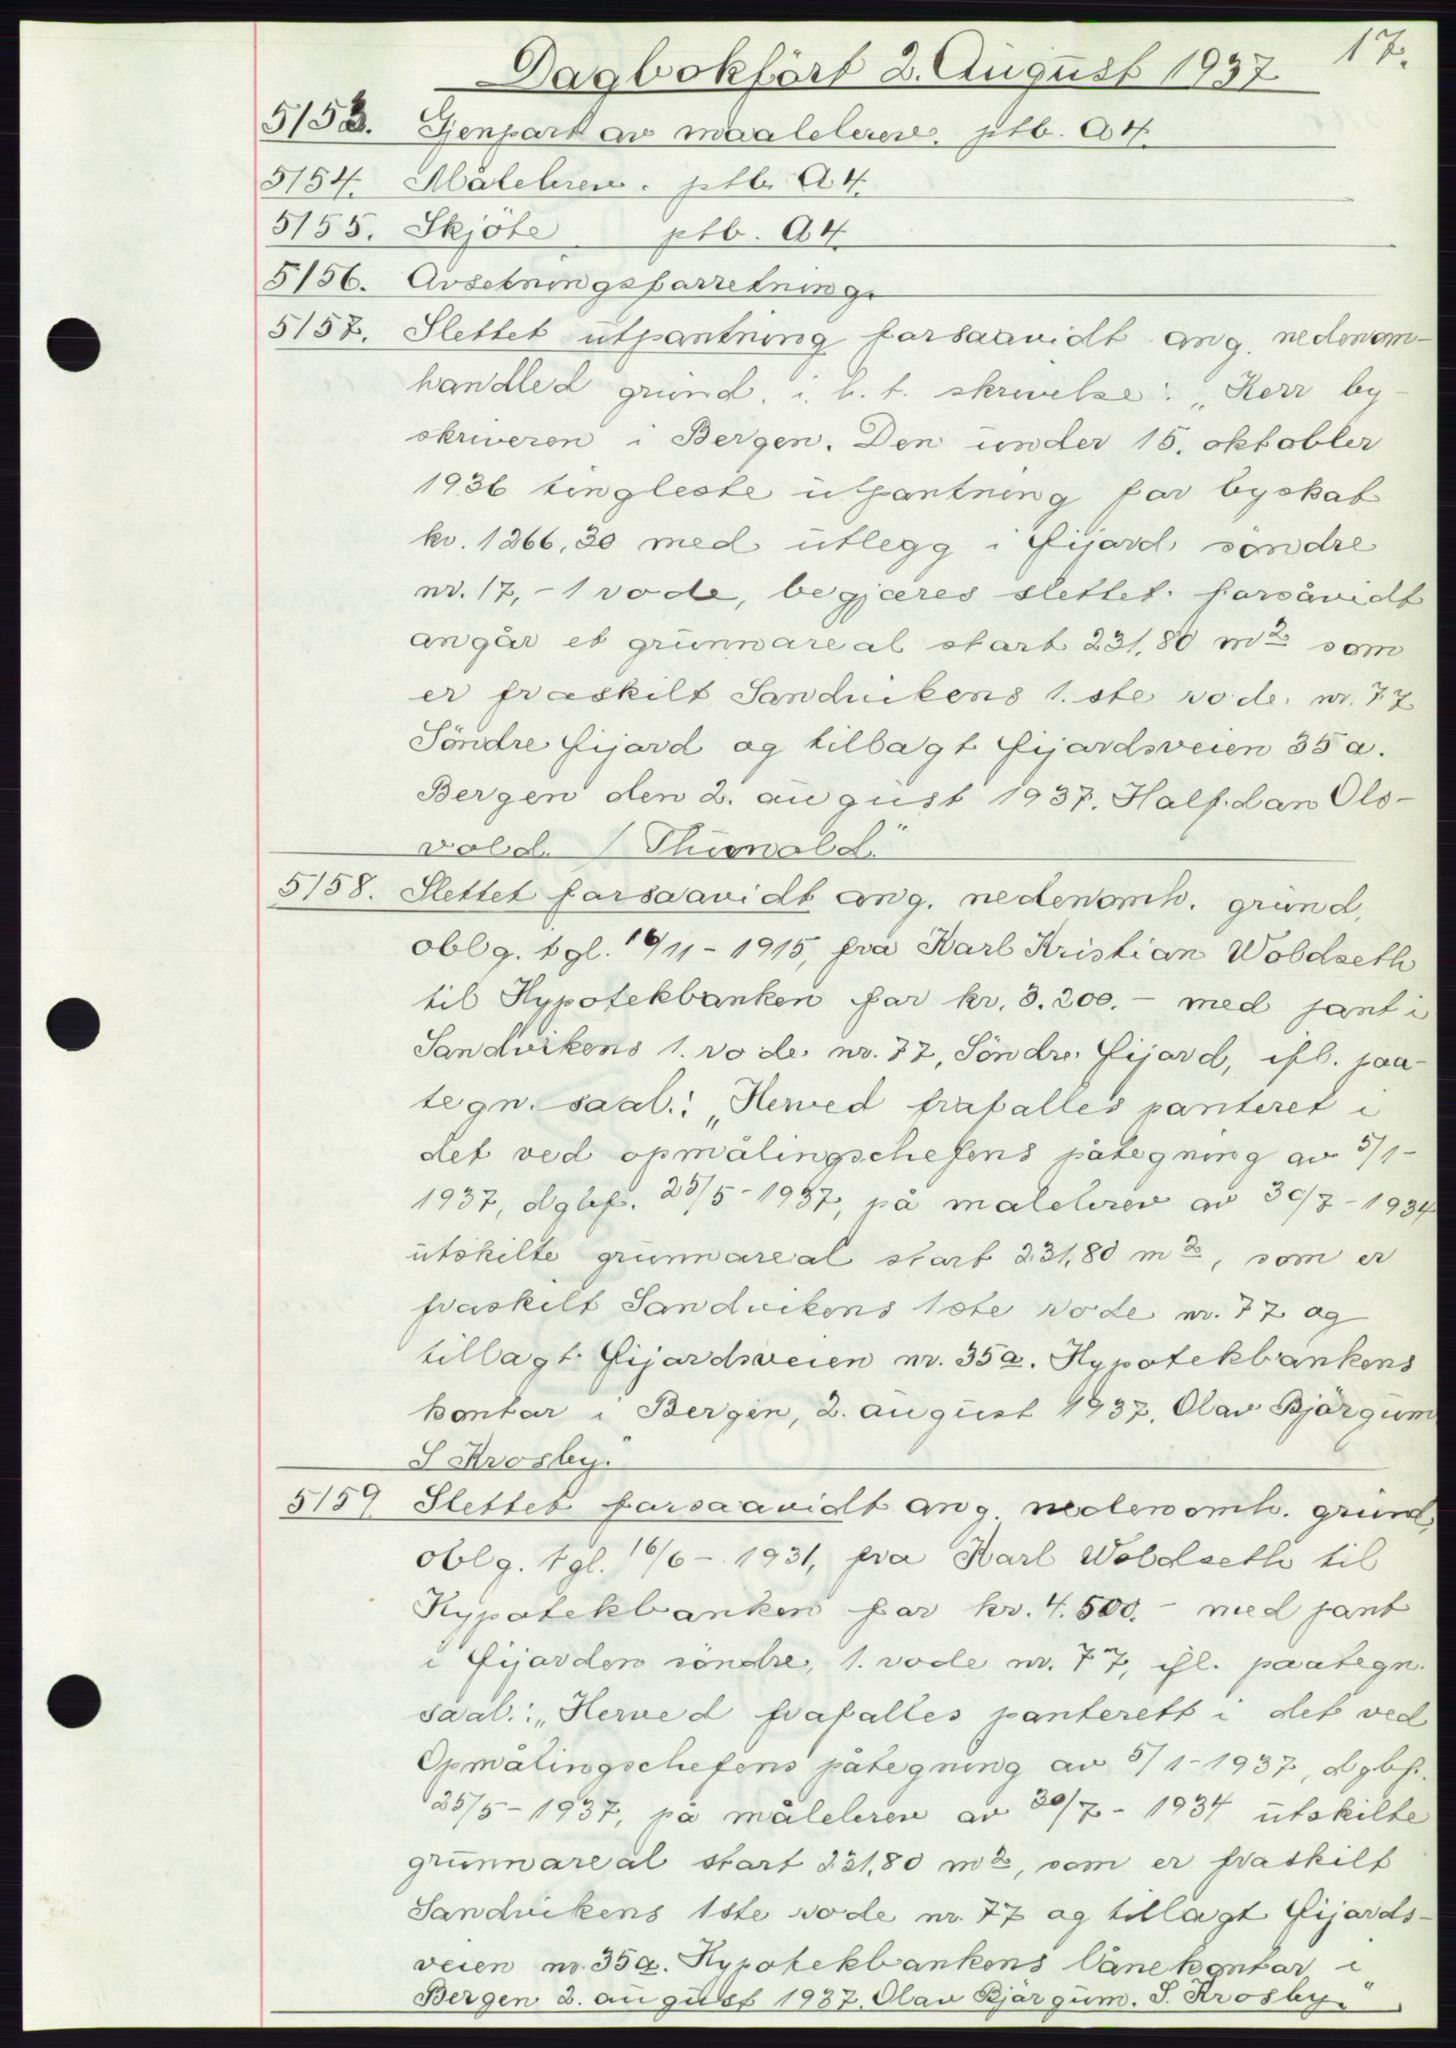 17.
Dagbokført 2. August 1937
5153. Gjenpart av maalebrev. ptb. A4.
5154. Målebrev. ptb. A4.
5155. Skjöte ptb. A4.
5156. Avsetningsforretning.
5157. Slettet utpantning forsaavidt ang. nedenom-
handled grund. i. h. t. skrivelse: „Herr by-
skriveren i Bergen. Den under 15. oktobler
1936 tingleste utpantning for byskat
kr. 1266,30 med utlegg i Fijard söndre
nr. 17, - 1 rode, begjæres slettet forsåvidt
angår et grunnareal stort 231,80 m2 som
er fraskilt Sandvikens 1. ste rode. nr. 77
Söndre Fijard og tilbagt Fijardsveien 35 a.
Bergen den 2. august 1937. Halfdan Ols-
vold. / Thunold."
5158. Slettet forsaavidt ang. nedenomh. grund,
oblg. tgl. 16/11 - 1915, fra Karl Kristian Woldseth
til Hypotekbanken for kr. 3.200.- med pant i
Sandvikens 1. rode. nr. 77, Söndre Fijard, ifl. paa-
tegn. saal.: „Herved frafalles panteret i
det ved opmålingschefens påtegning av 5/1-
1937, dgbf. 25/5 - 1937, på malebrev av 30/7 - 1934
utskilte grunnareal stort 231,80 m2, som er
fraskilt Sandvikens 1ste rode nr. 77 og
tillagt Fijardsveien nr. 35a. Hypotekbankens
kontor i Bergen, 2. august 1937, Olav Bjørgum
S Krosby."
5159 Slettet forsaavidt ang. nedenomh. grund,
oblg. tgl. 16/6 - 1931, fra Karl Woldseth til
Hypotekbanken for kr. 4.500.- med pant
i Fijarden söndre, 1. rode nr. 77, ifl. paategn.
saal.: „Herved frafalles panterett i det ved
Opmålingschefens påtegning av 5/1 - 1937, dgbf.
25/5 - 1937, på målebrev av 30/7 - 1934 utskilte
grunnareal stort 231,80 m2, som er fraskilt
Sandvikens 1ste rode nr. 77 og tillagt Fijards-
veien nr. 35a. Hypotekbankens lånekontor i
Bergen 2. august 1937. Olav Bjørgum. S. Krosby."